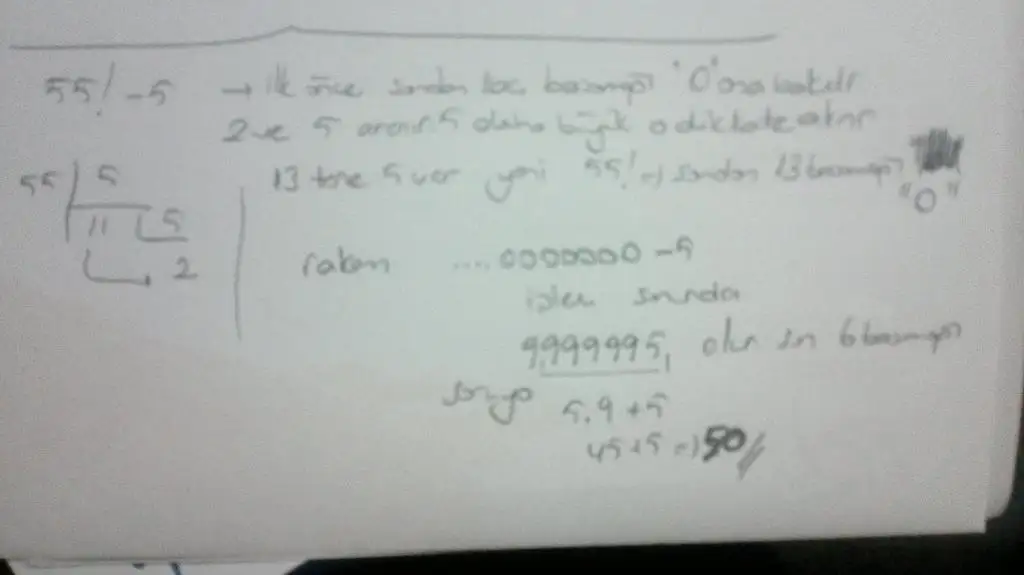 55! -5 → ilk önce sondan kaç basamağı "0" ona bakılır
2 ve 5 aranır 5 daha büyük o dikkate alınır
55 | 5 13 tane 5 var yani 55! => sondan 13 basamağı "0"
11 | 5
2
rakam ....0000000 -5
işlem sonunda
9999995, olur son 6 basamağı
soruyo 5.9+5
45+5 => 50//